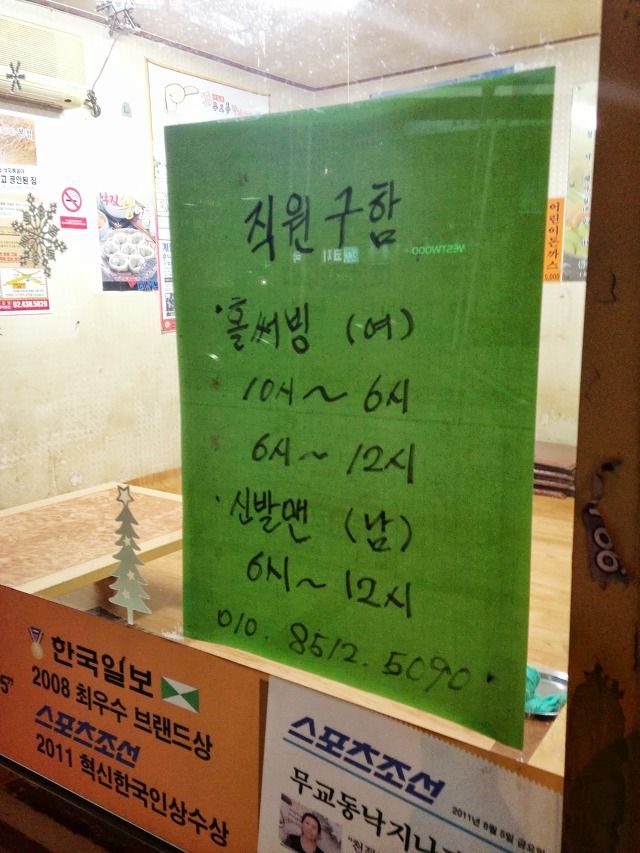 직원구함
WESTWOOD
·홀써빙 (여)
10시~ 6시
6시~ 12시
·신발맨 (남)
6시~ 12시
010. 8512. 5090.
고 공인된 집
02.438.5829
어린이돈까스
5,000
한국일보
2008 최우수 브랜드상
스포츠조선
2011 혁신한국인상수상
스포츠조선
2011년 8월 5일 금요일
무교동낙지